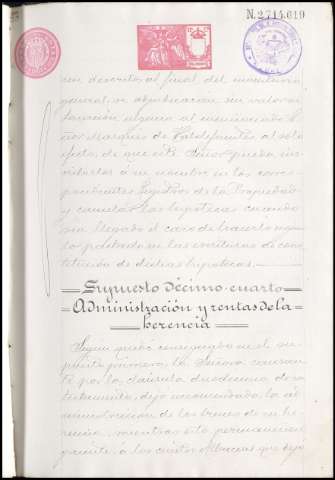 N.2,714,619
cen descritos al final del inventario
general, se adjudicación su valoren
al mencionado Se
ñor Marqués de Valdefuentes al solo
efecto, de que S.E. Señor pueda ins
cribirlas á su nombre en los corres
pondientes Registros de la Propiedad
y cancelar las hipotecas cuando
sea llegado el caso de hacerlo segun
lo pactado en las escrituras de cons
titución de dichas hipotecas.
Supuesto décimo cuarto
Administración y rentas de la
herencia
Segun quedó consignado en el su
puesto primero, la Señora causan
te por la cláusula duodécima de su
testamento, dejó encomendada la ad
ministración de los bienes de su he
rencia, mientras ésta permanezca
á los cuatro Albaceas que dejó